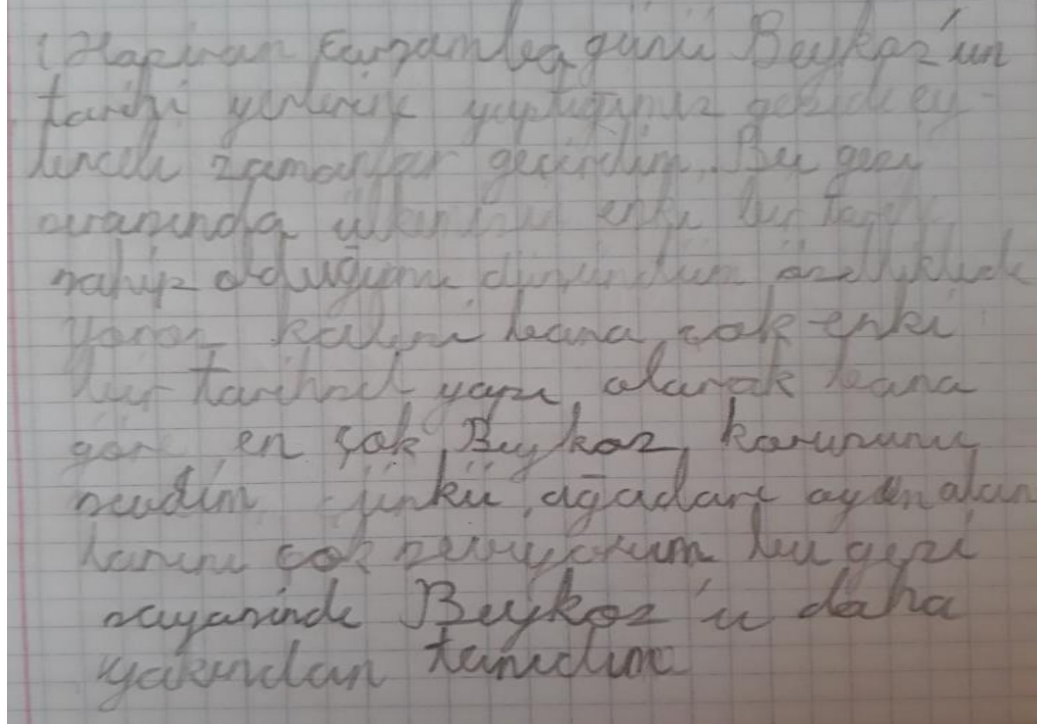 1 Haziran Çarşamba günü Beykoz'un
tarihi yerlerine yaptığımız gezide ey-
lenceli zamanlar geçirdim. Bu gezi
sırasında ülkemizin eski bir tarihe
sahip olduğunu düşündüm özellikle
yoros kalesi bana çok eski
bir tarihsel yapı olarak bana
göre en çok Beykoz korusunu
sevdim çünkü ağaçları oyun alan
larını çok seviyorum bu gezi
sayesinde Beykoz'u daha
yakından tanıdım